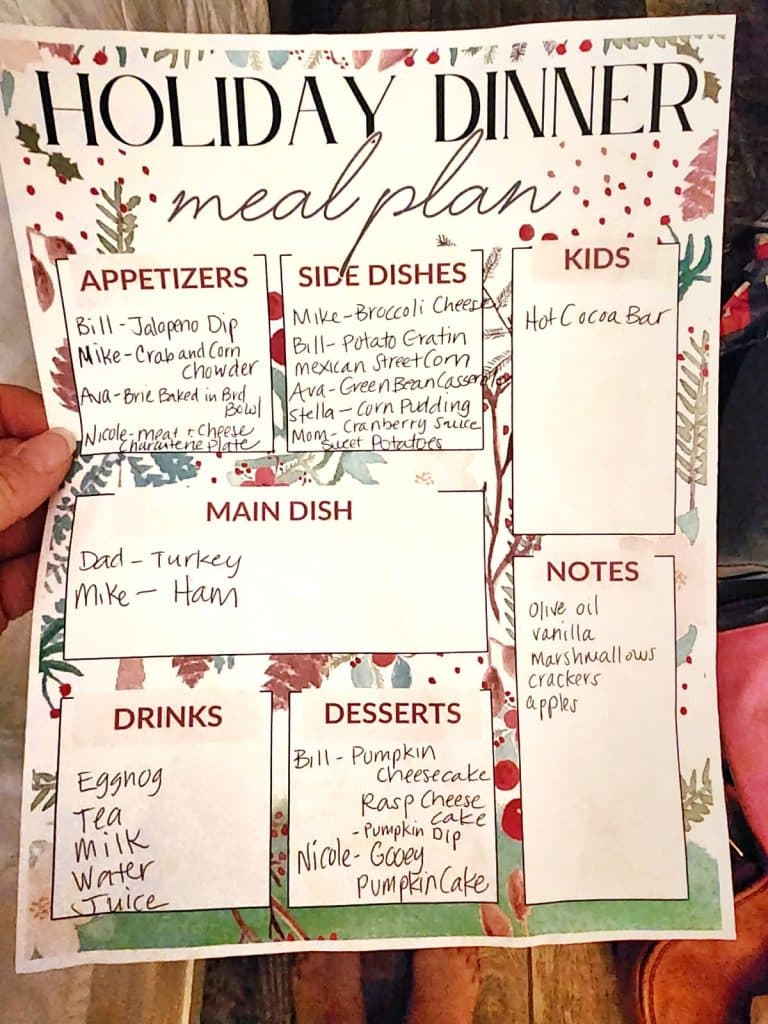 HOLIDAY DINNER
meal plan
APPETIZERS
Bill - Jalapeno Dip
Mike - Crab and Corn
Chowder
Ava - Brie Baked in Brd
Bowl
Nicole - meat + Cheese
Charcuterie Plate
SIDE DISHES
Mike - Broccoli Cheese
Bill - Potato Gratin
mexican Street Corn
Ava - Green Bean Casserole
Stella - Corn Pudding
Mom - Cranberry Sauce
Sweet Potatoes
KIDS
Hot Cocoa Bar
MAIN DISH
Dad - Turkey
Mike - Ham
NOTES
Olive oil
vanilla
Marshmallows
crackers
apples
DRINKS
Eggnog
Tea
Milk
Water
Juice
DESSERTS
Bill - Pumpkin
Cheesecake
Rasp Cheese
Cake
- Pumpkin Dip
Nicole - Gooey
Pumpkin Cake